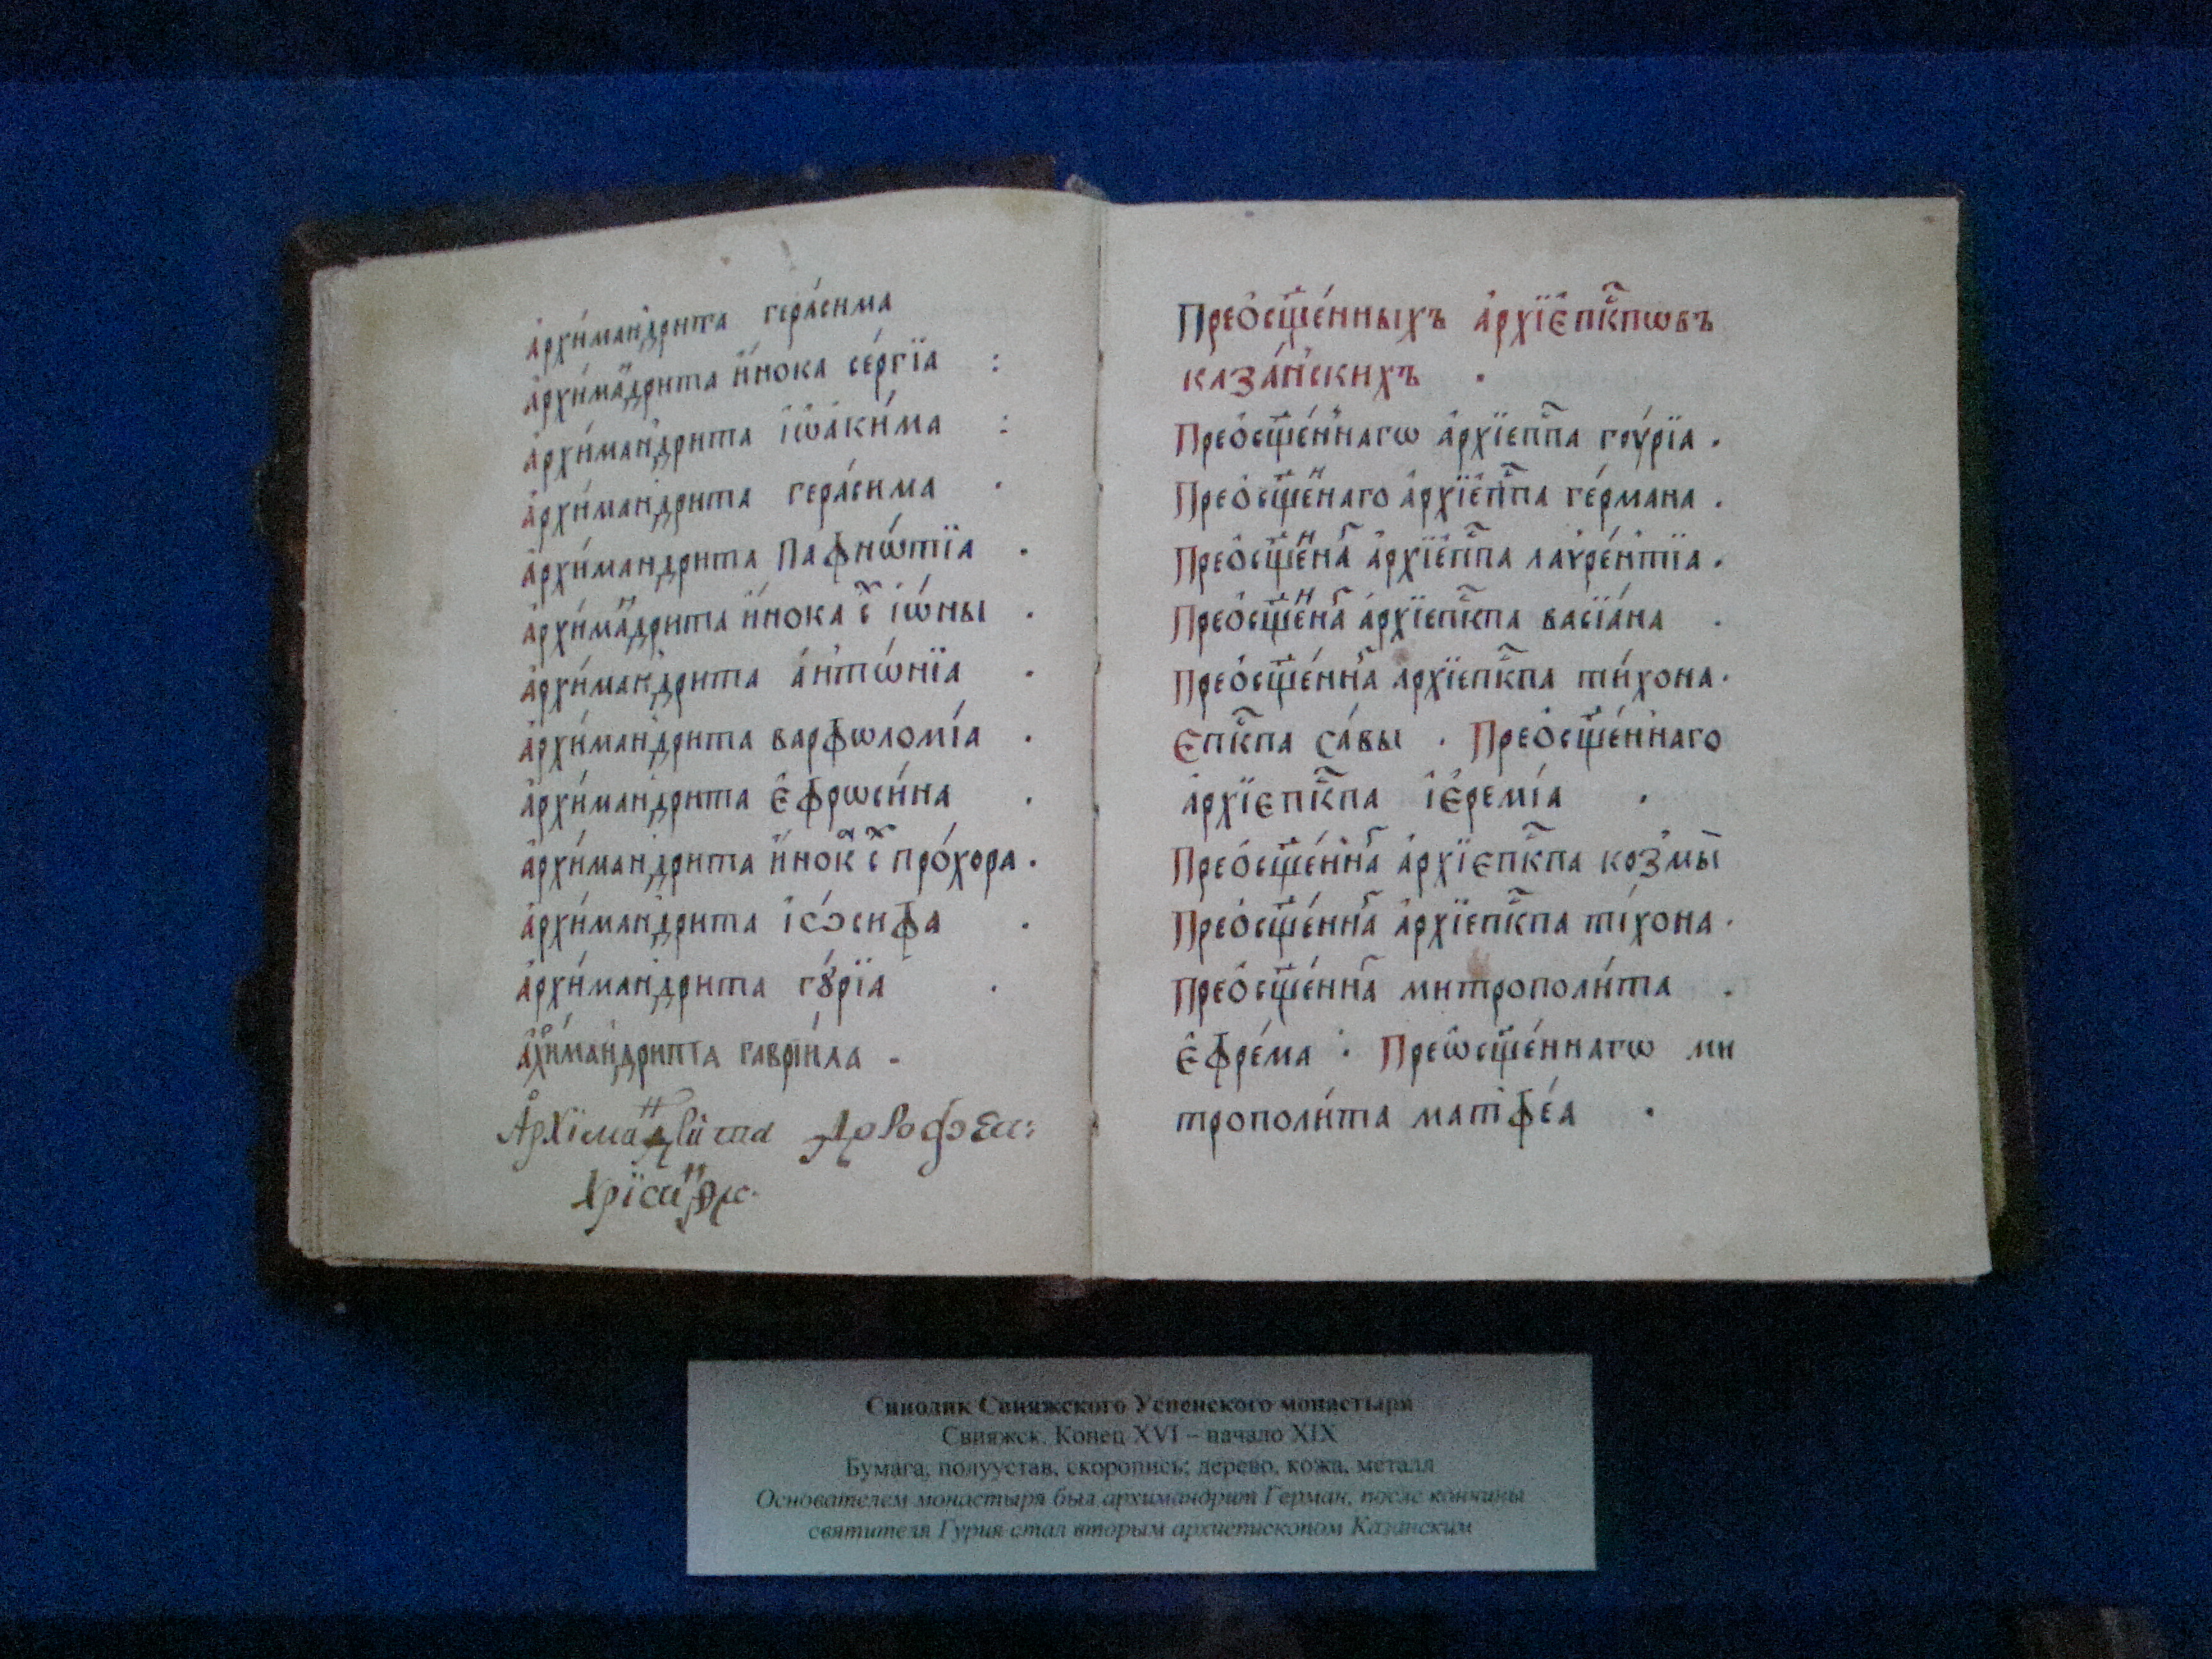 а҆рхи́мандрита гера́сима
а҆рхи́ма́ндрита и҆́нока се́ргїа :
а҆рхи́мандрита і҆ѡ҆аки́ма :
а҆рхи́мандрита гера́сима .
а҆рхи́мандрита Пафнѡ́тїа .
а҆рхи́маⷩдрита и҆́нока с̾х і҆ѡ́ны .
а҆рхи́мандрита а҆нтѡ́нїа .
а҆рхи́мандрита варфѡломі́а .
а҆рхи́мандрита є҆фрѡси́на .
а҆рхи́мандрита и҆́нокⷶ сⷯ про́хора .
а҆рхи́мандрита і҆ѡ́сифа .
а҆рхи́мандрита гꙋ́рїа .
а҆рⷯи́мандрита гаврі́ила .
Архїмаⷩдрїта
Хрїсаⷩ
Прео҆сщ҃е́нныхъ а҆рхїє҆пкⷭ҇пѡвъ
каза́нскихъ .
Прео҆сщ҃е́ннагѡ а҆рхїеп҃па гоу́рїа .
Прео҆сщ҃е́ⷩнаго а҆рхїе҆п҃па ге́рмана .
Прео҆сщ҃е́ⷩнаⷢ а҆рхїе҆п҃па лаѵре́нтїа .
Прео҆сщ҃е́ⷩнаⷢ а҆рхїепкⷭ҇па васїа́на .
Прео҆сщ҃е́ннаⷢ а҆рхїепкⷭ҇па ти́хона .
Єпкⷭ҇па са́вы . Прео҆сщ҃е́ннаго
а҆рхїєпкⷭ҇па і҆є҆ремі́а .
Прео҆сщ҃е́ннаⷢ а҆рхїєпкⷭ҇па козмы̀
Прео҆сщ҃е́ннаⷢ а҆рхїепкⷭ҇па ті́хона .
Прео҆сщ҃е́ннаⷢ митрополи́та .
є҆фре́ма . Преѡ҆сщ҃е́ннагѡ ми
трополи́та матфе́а .
Синодик Свияжского Успенского монастыря
Свияжск. Конец XVI – начало XIX
Бумага, полуустав, скоропись; дерево, кожа, металл
Основателем монастыря был архимандрит Герман, после кончины
святителя Гурия стал вторым архиепископом Казанским